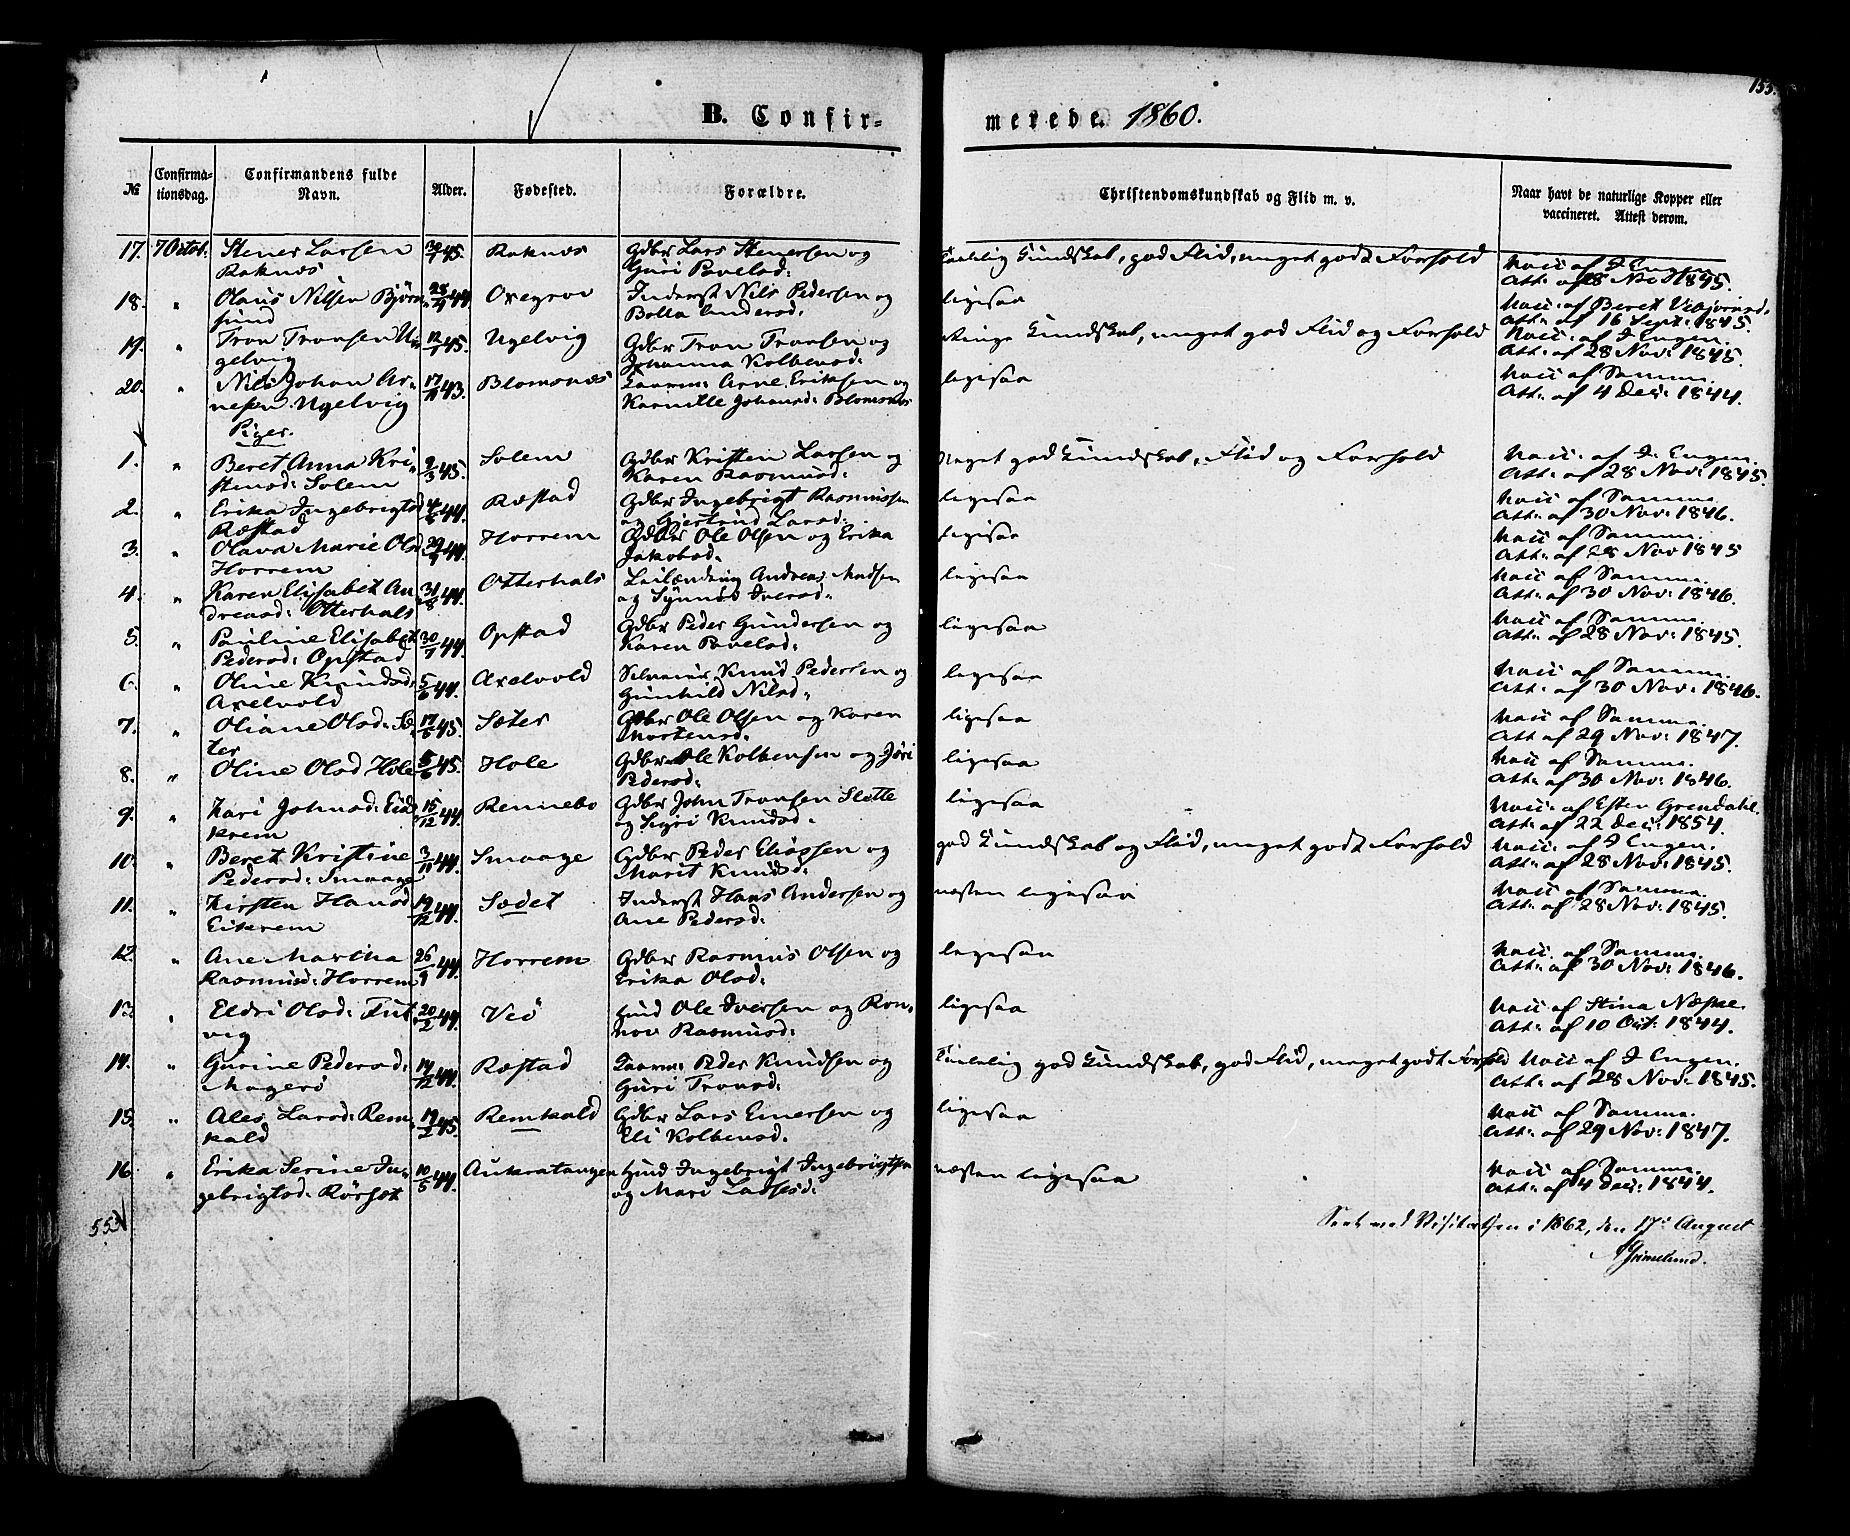 155.
B. Confirmerede. 1860.
№ Confirmationsdag. Confirmandens fulde Navn. Alder. Fødested. Forældre. Christendomskundskab og Flid m. v. Naar havt de naturlige Kopper eller vaccineret. Attest derom.
17. 7 Octob: Stener Larsen 45. Raknæs Gdbr Lars Stenersen og Kundskab, god Flid, meget godt Forhold Vacc af
Raknæs Guri Povelsd: Att: af 28 Nov 1845.
18. " Olaus Nilsen Bjørn 44 Oxegrov Inderst Nils Pedersen og ligesaa Vacc: af Beret
sund Att: af 16 Sept: 1845.
19. " Tron Tronsen U 45. Ugelvig Gdbr Tron Tronsen og Kundskab, meget god Flid og Forhold Vacc: af J Engen.
gelvig Johanna Kolbensd: Att: af 28 Nov: 1845.
20. " Nils Johan Ar- 17/11 43. Blomsnæs Arne Eriksen og ligesaa Vacc af Samme.
nesen Ugelvig Johansd: Blomsnæs Att: af 4 Dec: 1844.
Piger.
1. " Beret Anna Kri- 45. Solem Gdbr Kristen Larsen og Meget god Kundskab, Flid og Forhold Vacc: af J. Engen.
stensd: Solem Karen Rasmusd: Att: af 28 Nov: 1845.
2. " Erika Ingebrigtsd 44. Ræstad Gdbr Ingebrigt Rasmussen ligesaa Vacc af Samme.
Ræstad og Gjertrud Larsd: Att: af 30 Nov: 1846.
3. " Olava Marie Olsd 44. Horrem Gdbr Ole Olsen og Erika Ligesaa Vacc: af Samme.
Horrem Jakobsd: Att: af 28 Nov 1845
4. " Karen Elisabet An 31/8 44. Otterhals Leilænding Andreas Madsen ligesaa Vacc af Samme.
dreasd: Otterhals og Synnøt Iversd: Att: af 30 Nov: 1846.
5. " Pauline Elisabet 30/7 44. Opstad Gdbr Peder Gundersen og ligesaa Vacc af Samme.
Pedersd: Opstad Karen Povelsd: Att: af 28 Nov: 1845.
6. " Oline Knudsd: 5/6 44. Axelvold Knud Pedersen og ligesaa Vacc af Samme.
Axelvold Gunhild Nilsd: Att: af 30 Nov: 1846.
7. " Oliane Olsd: Sæ- 17/6 45. Sæter Gdbr Ole Olsen og Karen ligesaa Vacc af Samme.
ter Mortensd: Att: af 29 Nov: 1847.
8. " Oline Olsd Hole 45. Hole Gdbr Ole Kolbensen og Jøri ligesaa Vacc af Samme.
Pedersd: Att: af 30 Nov: 1846.
9. " Kari Johnsd: Eid 15/12 44. Rennebo Gdbr John Tronsen Slette ligesaa Vacc: af Esten Grendahl.
krem og Sigri Knudsd: Att: af 22 Dec: 1854.
10. " Beret Kristine 3/11 44. Smaage Gdbr Peder Eliassen og god Kundskab og Flid, meget godt Forhold Vacc: af J Engen.
Pedersd: Smaage Marit Knudsd: Att: af 28 Nov: 1845.
11. " Kirsten Hansd 19/12 44. Sædet Inderst Hans Andersen og næsten ligesaa Vacc af Samme.
Eikrem Ane Pedersd: Att: af 28 Nov: 1845.
12. " Ane Martha 26/9 44. Horrem Gdbr Rasmus Olsen og ligesaa Vacc: af Samme.
Rasmusd: Horrem Erika Olsd: Att: af 30 Nov: 1846.
13. " Eldri Olsd: 20/2 44. Veö Huusmd Ole Iversen og Ron- ligesaa Vacc af Stina Næsse.
vig nov Rasmusd: Att: af 10 Oct: 1844.
14. " Gurine Pedersd: 44. Ræstad Peder Knudsen og Temmelig god Kundskab, god Flid, meget godt Forhold Vacc: af J Engen.
Magerö Guri Tronsd: Att: af 28 Nov: 1845.
15. " Ales Larsd: Rem 19/2 45. Remkald Gdbr Lars Einersen og ligesaa Vacc af Samme.
kald Eli Kolbensd. Att: af 29 Nov: 1847.
16. " Erika Serine In- 10/5 44. Aukratangen Ingebrigt Ingebrigtsen næsten ligesaa Vacc: af Samme.
gebrigtsd: Rörset og Mari Ladsesd: Att: af 4 Dec: 1844.
553
Seet ved Visitatsen i 1862, den 17de August
Grimelund.